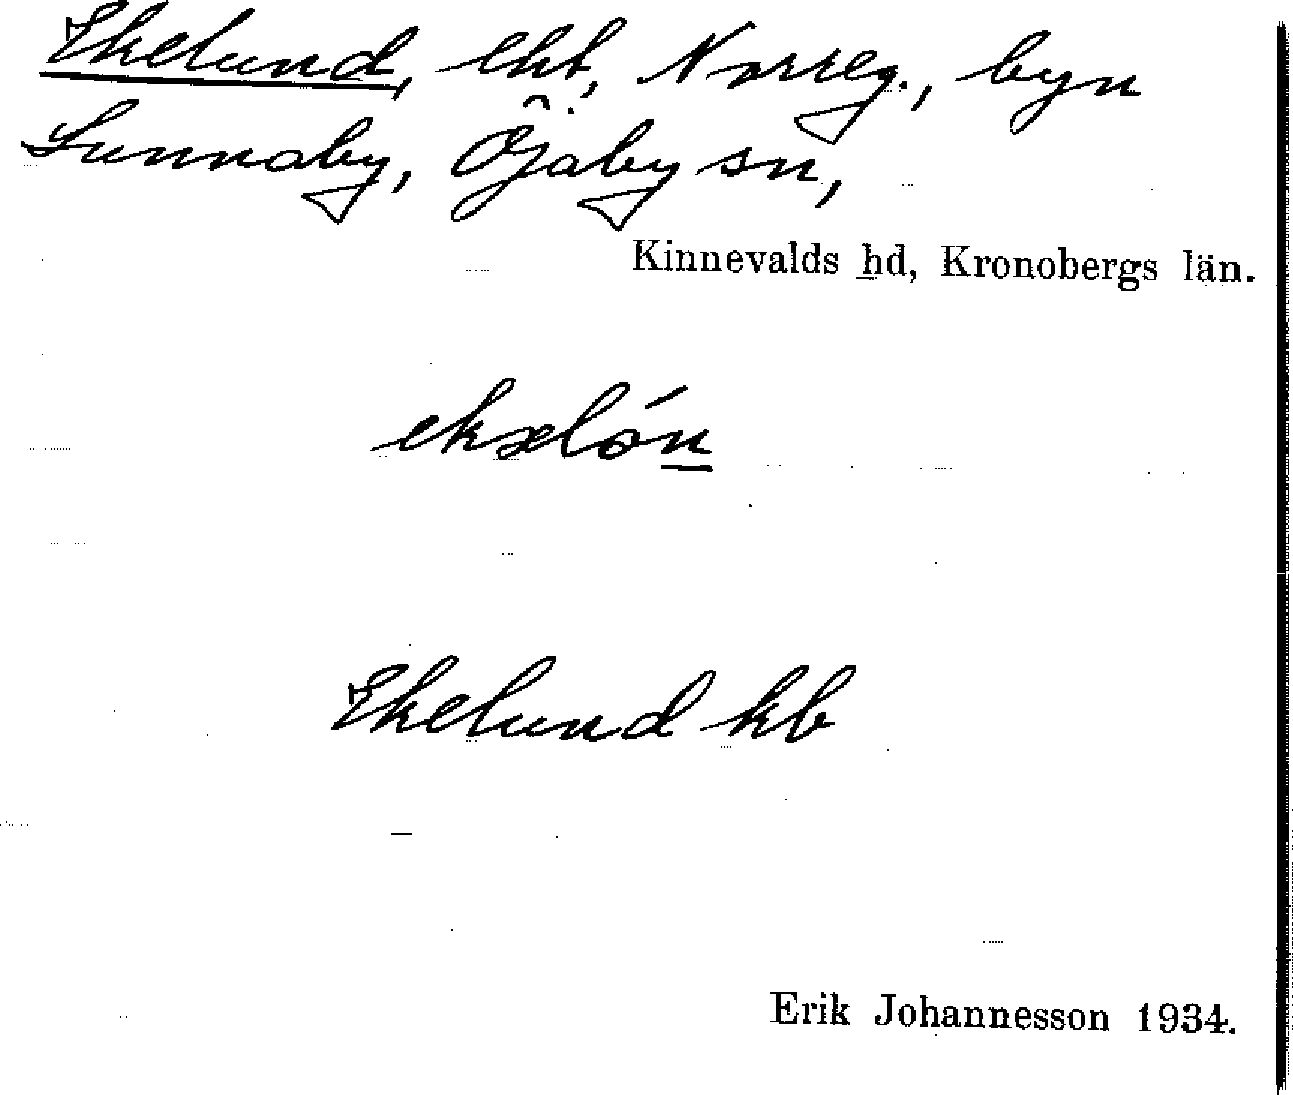 Ekelund, lht, Norreg., byn
Lunnaby, Öjaby sn,
Kinnevalds hd, Kronobergs län.
ekəlón
Ekelund kb
Erik Johannesson 1934.